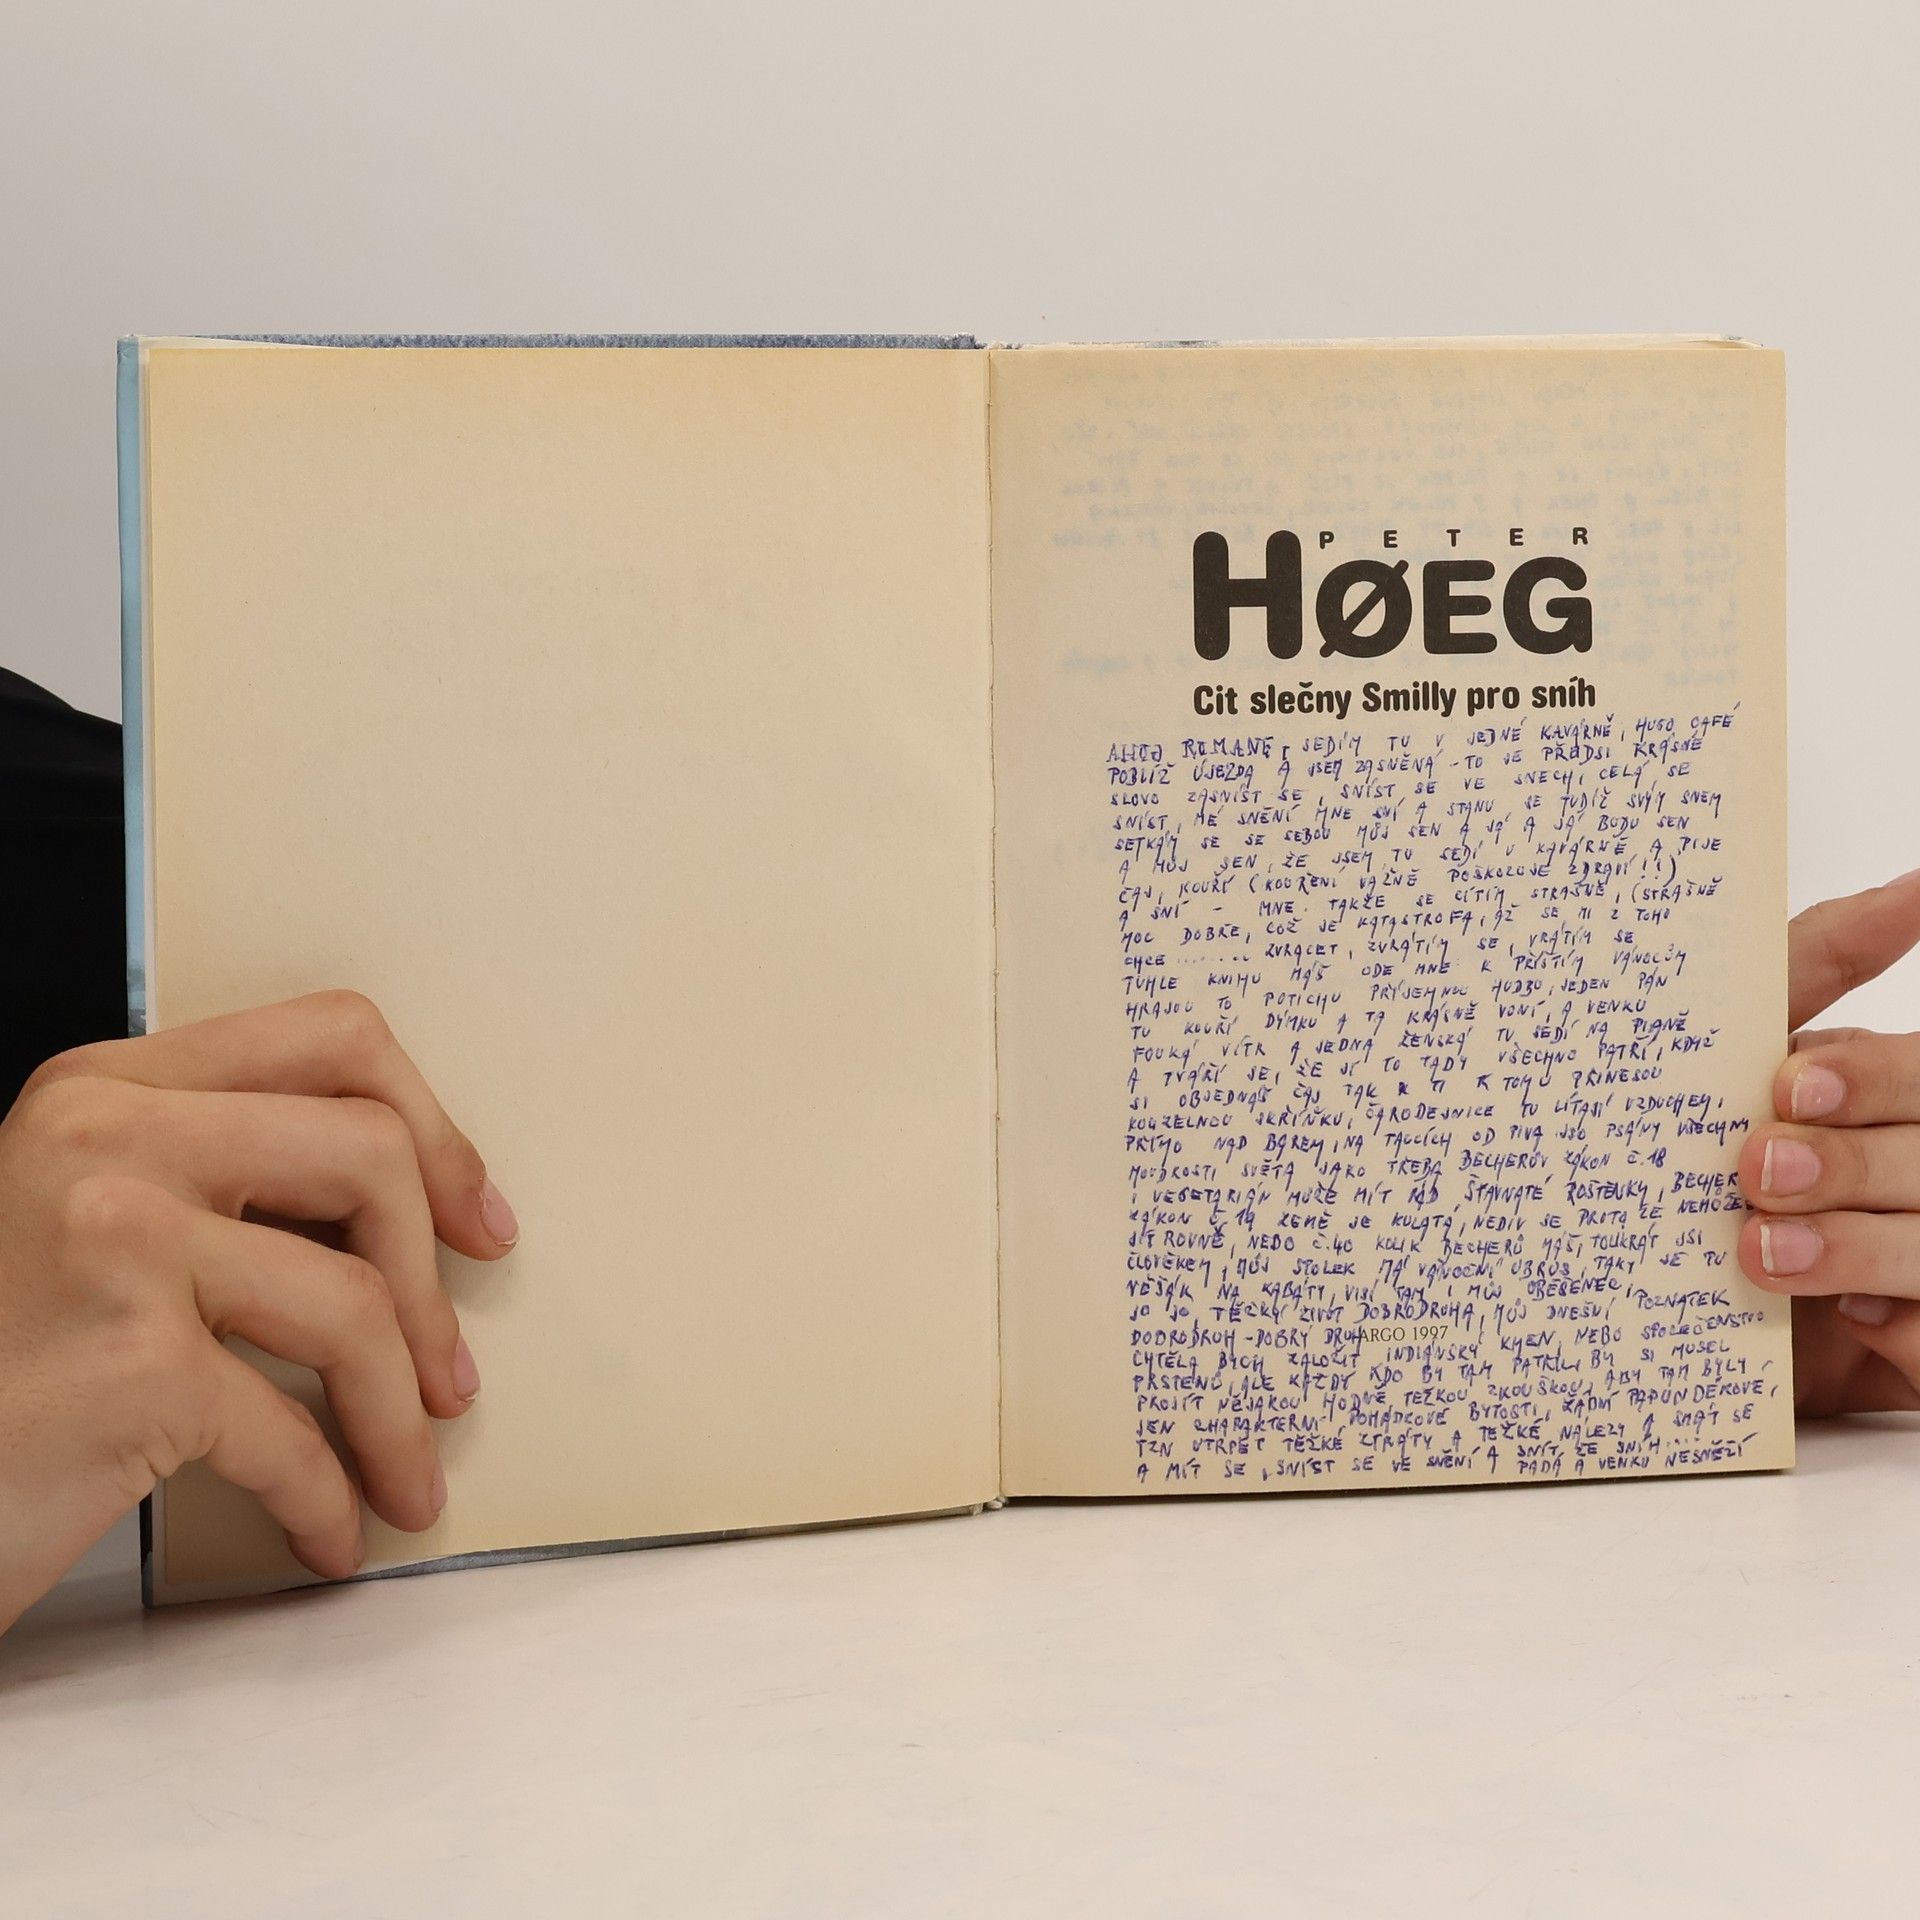 PETER
HØEG
Cit slečny Smilly pro sníh
AHOJ ROMANE, SEDÍM TU V JEDNÉ KAVÁRNĚ, HUGO CAFÉ
POBLÍŽ ÚJEZDA A JSEM ZASNĚNÁ - TO JE PŘEDSI KRÁSNÉ
SLOVO ZASNÍST SE, SNÍST SE VE SNECH, CELÁ SE
SNÍST, MÉ SNĚNÍ MNE SNÍ A STANU SE TUDÍŽ SVÝM SNEM
SETKÁM SE SE SEBOU MŮJ SEN A JÁ A JÁ BUDU SEN
A MŮJ SEN, ŽE JSEM, TU SEDÍ V KAVÁRNĚ A PIJE
ČAJ, KOUŘÍ (KOUŘENÍ VÁŽNĚ POŠKOZUJE ZDRAVÍ!!)
A SNÍ - MNE. TAKŽE SE CÍTÍM STRAŠNĚ, (STRAŠNĚ
MOC DOBŘE, COŽ JE KATASTROFA, AŽ SE MI Z TOHO
CHCE ........ ZVRACET, ZVRÁTÍM SE, VRÁTÍM SE
TUHLE KNIHU MÁŠ ODE MNE K PŘÍŠTÍM VÁNOCŮM
HRAJOU TO POTICHU PŘÍJEMNOU HUDBU, JEDEN PÁN
TU KOUŘÍ DÝMKU A TA KRÁSNĚ VONÍ, A VENKU
FOUKÁ VÍTR A JEDNA ŽENSKÁ TU SEDÍ NA PIANĚ
A TVÁŘÍ SE, ŽE JÍ TO TADY VŠECHNO PATŘÍ, KDYŽ
SI OBJEDNÁŠ ČAJ TAK TI K TOMU PŘINESOU
KOUZELNOU SKŘÍŇKU, ČARODEJNICE TU LÍTAJÍ VZDUCHEM,
PŘÍMO NAD BAREM, NA TÁCCÍCH OD PIVA JSO PSÁNY VŠECHNY
MOUDROSTI SVĚTA JAKO TŘEBA BECHERŮV ZÁKON Č.18
I VEGETARIÁN MŮŽE MÍT RÁD ŠŤAVNATÉ ROŠTĚNKY, BECHER
ZÁKON Č.19 ZEMĚ JE KULATÁ, NEDIV SE PROTO ŽE NEMŮŽEŠ
JÍT ROVNĚ, NEBO Č.40 KOLIK BECHERŮ MÁŠ, TOLIKRÁT JSI
ČLOVĚKEM, MŮJ STOLEK MÁ VÁNOČNÍ UBRUS, TAKY JE TU
VĚŠÁK NA KABÁTY, VISÍ TAM I MŮJ OBĚŠENEC,
JO JO, TĚŽKÝ ŽIVOT DOBRODRUHA, MŮJ DNEŠNÍ POZNATEK
DOBRODRUH - DOBRÝ DRUH
ARGO 1997
CHTĚLA BYCH ZALOŽIT INDIÁNSKÝ KMEN, NEBO SPOLEČENSTVO
PRSTENU, ALE KAŽDÝ KDO BY TAM PATŘIL BY SI MUSEL
PROJÍT NĚJAKOU HODNĚ TEŽKOU ZKOUŠKOU, ABY TAM BYLY
JEN CHARAKTERNÍ POHÁDKOVÉ BYTOSTI, ŽÁDNÍ PAPUNDEKOVÉ,
TZN UTRPĚT TĚŽKÉ ZTRÁTY A TĚŽKÉ NÁLEZY A SMÁT SE
A MÍT SE, SNÍST SE VE SNĚNÍ A SNÍT, ŽE SNÍH....
PADÁ A VENKU NESNĚŽÍ